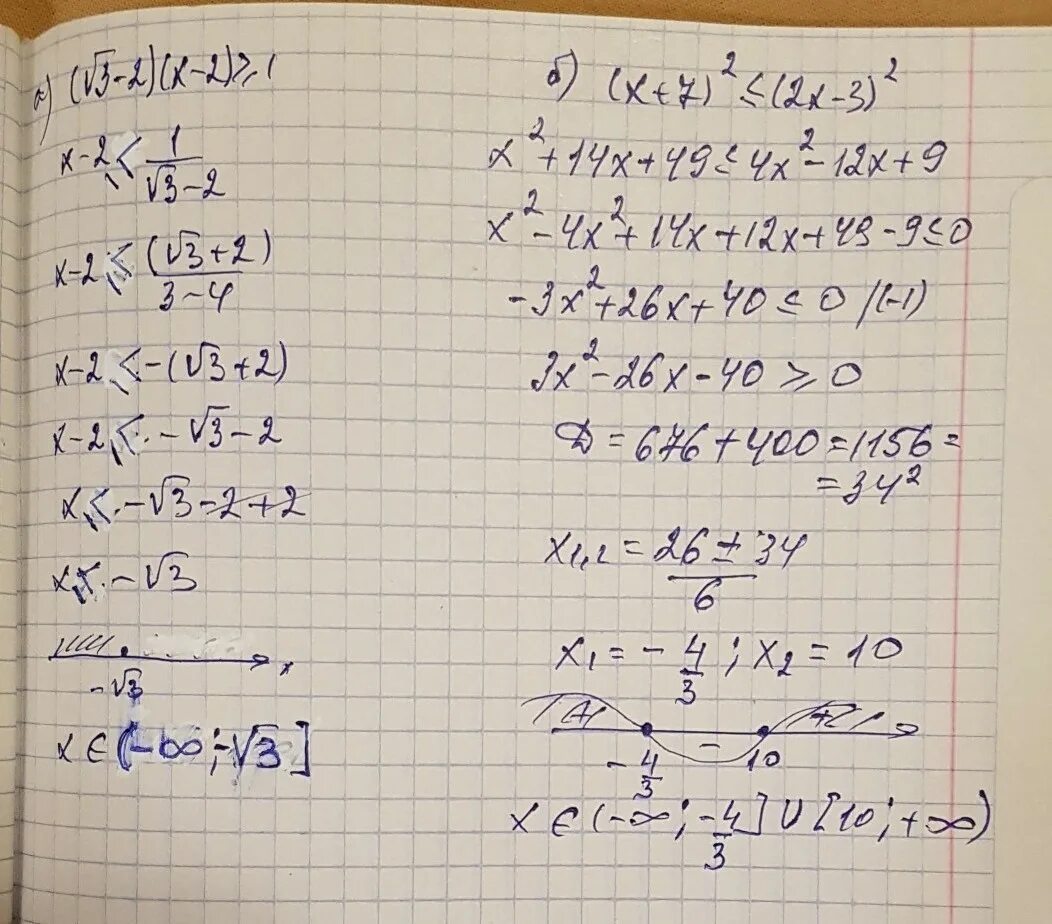 а) (√3-2)(x-2)≥1
x-2≤1/(√3-2)
x-2≤(√3+2)/(3-4)
x-2≤-(√3+2)
x-2≤-√3-2
x≤-√3-2+2
x≤-√3
x
-√3
x∈(-∞;-√3]
б) (x+7)²≤(2x-3)²
x²+14x+49≤4x²-12x+9
x²-4x²+14x+12x+49-9≤0
-3x²+26x+40≤0 /(-1)
3x²-26x-40≥0
D=676+400=1156=
=34²
x₁,₂=(26±34)/6
x₁=-4/3; x₂=10
+ - +
-4/3 10
x∈(-∞;-4/3]∪[10;+∞)